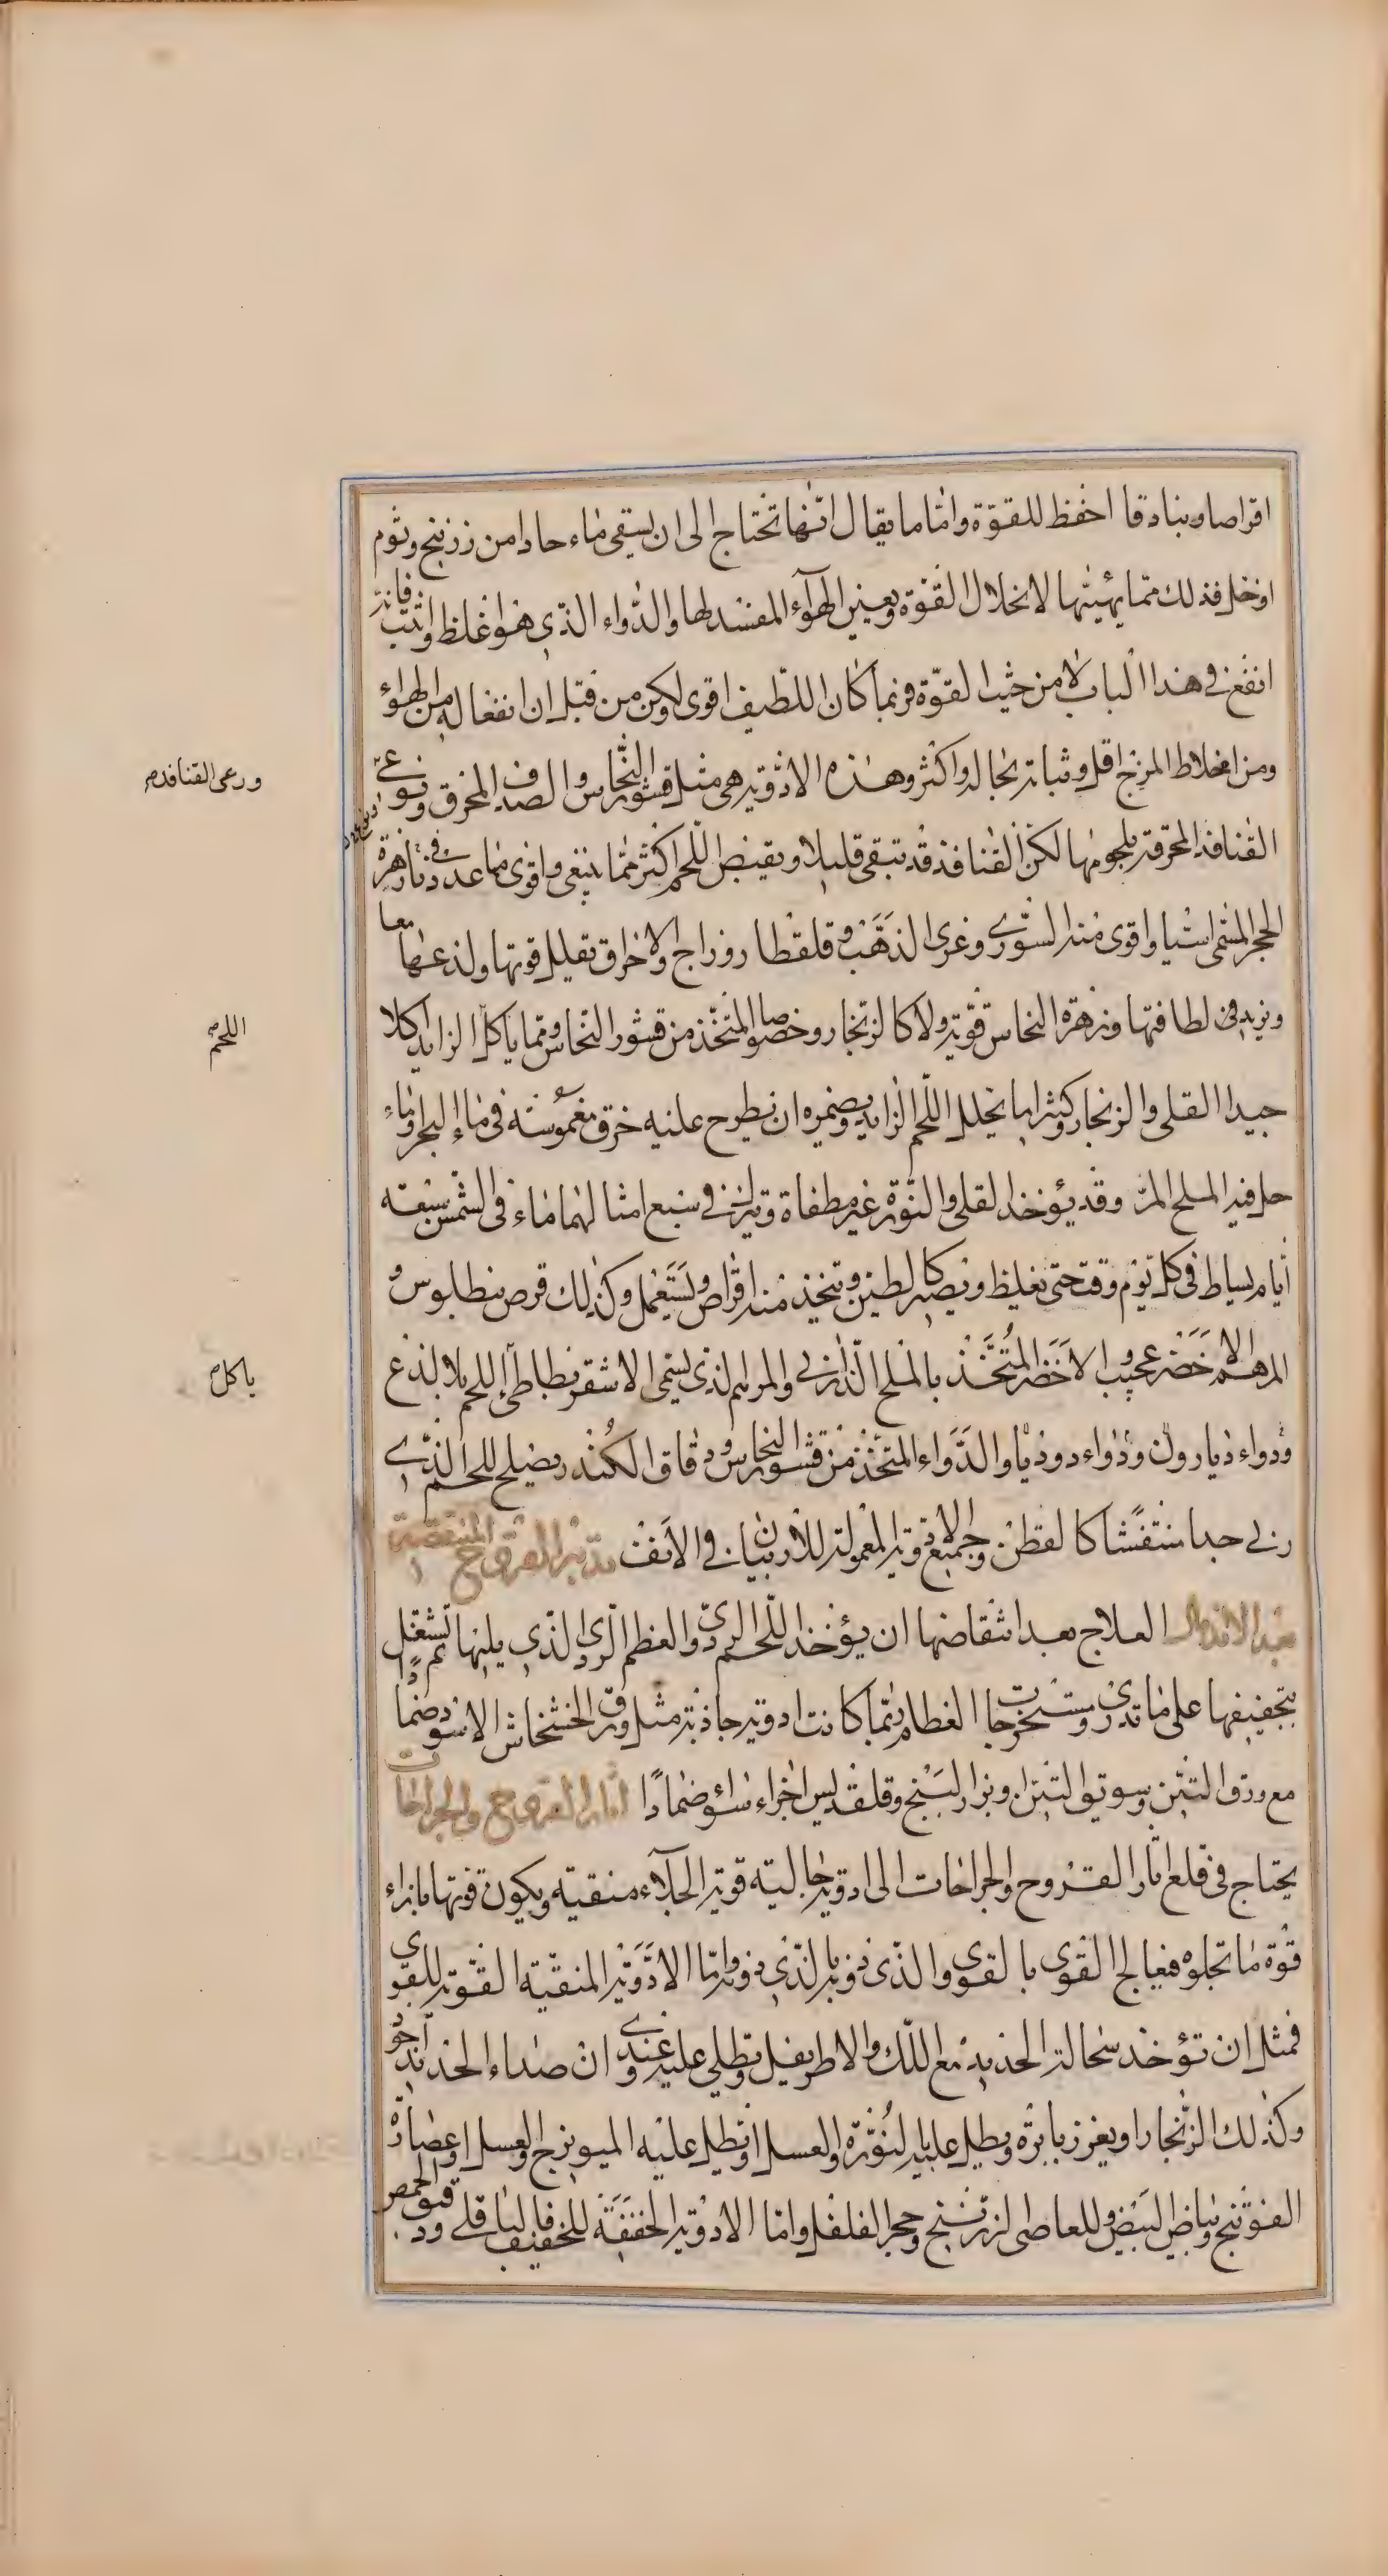 اقراصا وبنادقا احفظ للقوّة وامّا ما يقال انّها تحتاج الى ان يسقى ماء حادا من زرنيخ وثوم
او خل فذلك ممّا يهيّئها لانحلال القوّة ويعين الهوآء المفسد لها والدّواء الذّي هو اغلظ واثبت فانه
انفع في هذا الباب لا من حيث القوّة فربما كان اللطّيف اقوى ولكن من قبل ان انفعاله من الهواء
ومن اخلاط المزج اقل وثباته بحاله واكثر وهذه الادوية هي مثل قشور النّحاس والصدف المحرق ونوعي
ورعى القنافد م
القنافذ المحرقة بلحومها لكنّ القنافذ قد تبقى قليلا ويقبض اللّحم اكثر ممّا ينبغي واقوى مما عددناه زهرة
الحجر المسّمى اسيا واقوى منه السّوري وغرى الذهب وقلقطار وزاج والاحراق تقلل قوتها ولذعها معا
ويزيد في لطافتها وزهرة النحاس قوّية ولا كالزنجار وخصوصا المتّخذ من قشور النّحاس وممّا ياكل الزايد اكلا
اللحم م
جيدا القلى والزنجار وكثيرا ما يحلل اللّحم الزايد ويضمره ان يطرح عليه خرق مغموسة في ماء البحر وماء
حل فيه الملح المرّ وقد يؤخذ القلى والنّورة غير مطفاة وتترك في سبع امثالهما ماء في الشمس سبعة
أيام يساط في كل يوم وقت حتى يغلظ ويصير كالطين ويتخذ منه اقراص ويستعمل وكذلك قرص بيطالبوس و
المرهم الاخضر عجيب والاخضر المتّخذ بالملح الذّراني والمرهم الذي يسّمى الاشقر يطاطئ اللحم بلا لذع
ياكل م
ودواء ديارون ودواء دوديا والدّواء المتخّذ من قشور النحاس ودقاق الكندر ويصلح للحم الذّي
ربى جدا منتفّشا كالقطن وجميع الادوية المعمولة للاربيان في الانف تدبير القروح المنتقضة
بعد الاندمال العلاج بعد انتقاضها ان يؤخذ اللّحم الرديّ والعظم الرّدي الذّي يليها ثم تشتغل
بتجفيفها على ما تدري ويستخرج العظام ربّما كانت ادوية جاذبة مثل ورق الخشخاش الاسود ضمادا
مع ورق التين وسويق التين او بزر البنج وقلقديس اجزاء سواء ضمادا آثار القروح والجراحات
يحتاج في قلع اثار القروح والجراحات الى ادوية جالية قوية الجلآء منقية ويكون قوتها بازاء
قوّة ما تجلوه فيعالج القوي بالقوي والذي دونه بالذي دونه وامّا الادوّية المنقيّة القوّية للقوي
فمثل ان تؤخذ سحالة الحديد مع اللّك والاطريفل وتطلى عليه وعندي ان صداء الحديد اجود
وكذلك الزّنجار او يغرز بابرة ويطلى عليه بالنورة والعسل او يطلى عليه الميويزج والعسل او عصارة
الفوتنج وبياض البيض وللعاصي الزرنيخ وحجر الفلفل وامّا الادوية الخفيفة للخفيف فالباقلى ودقيق الحمص